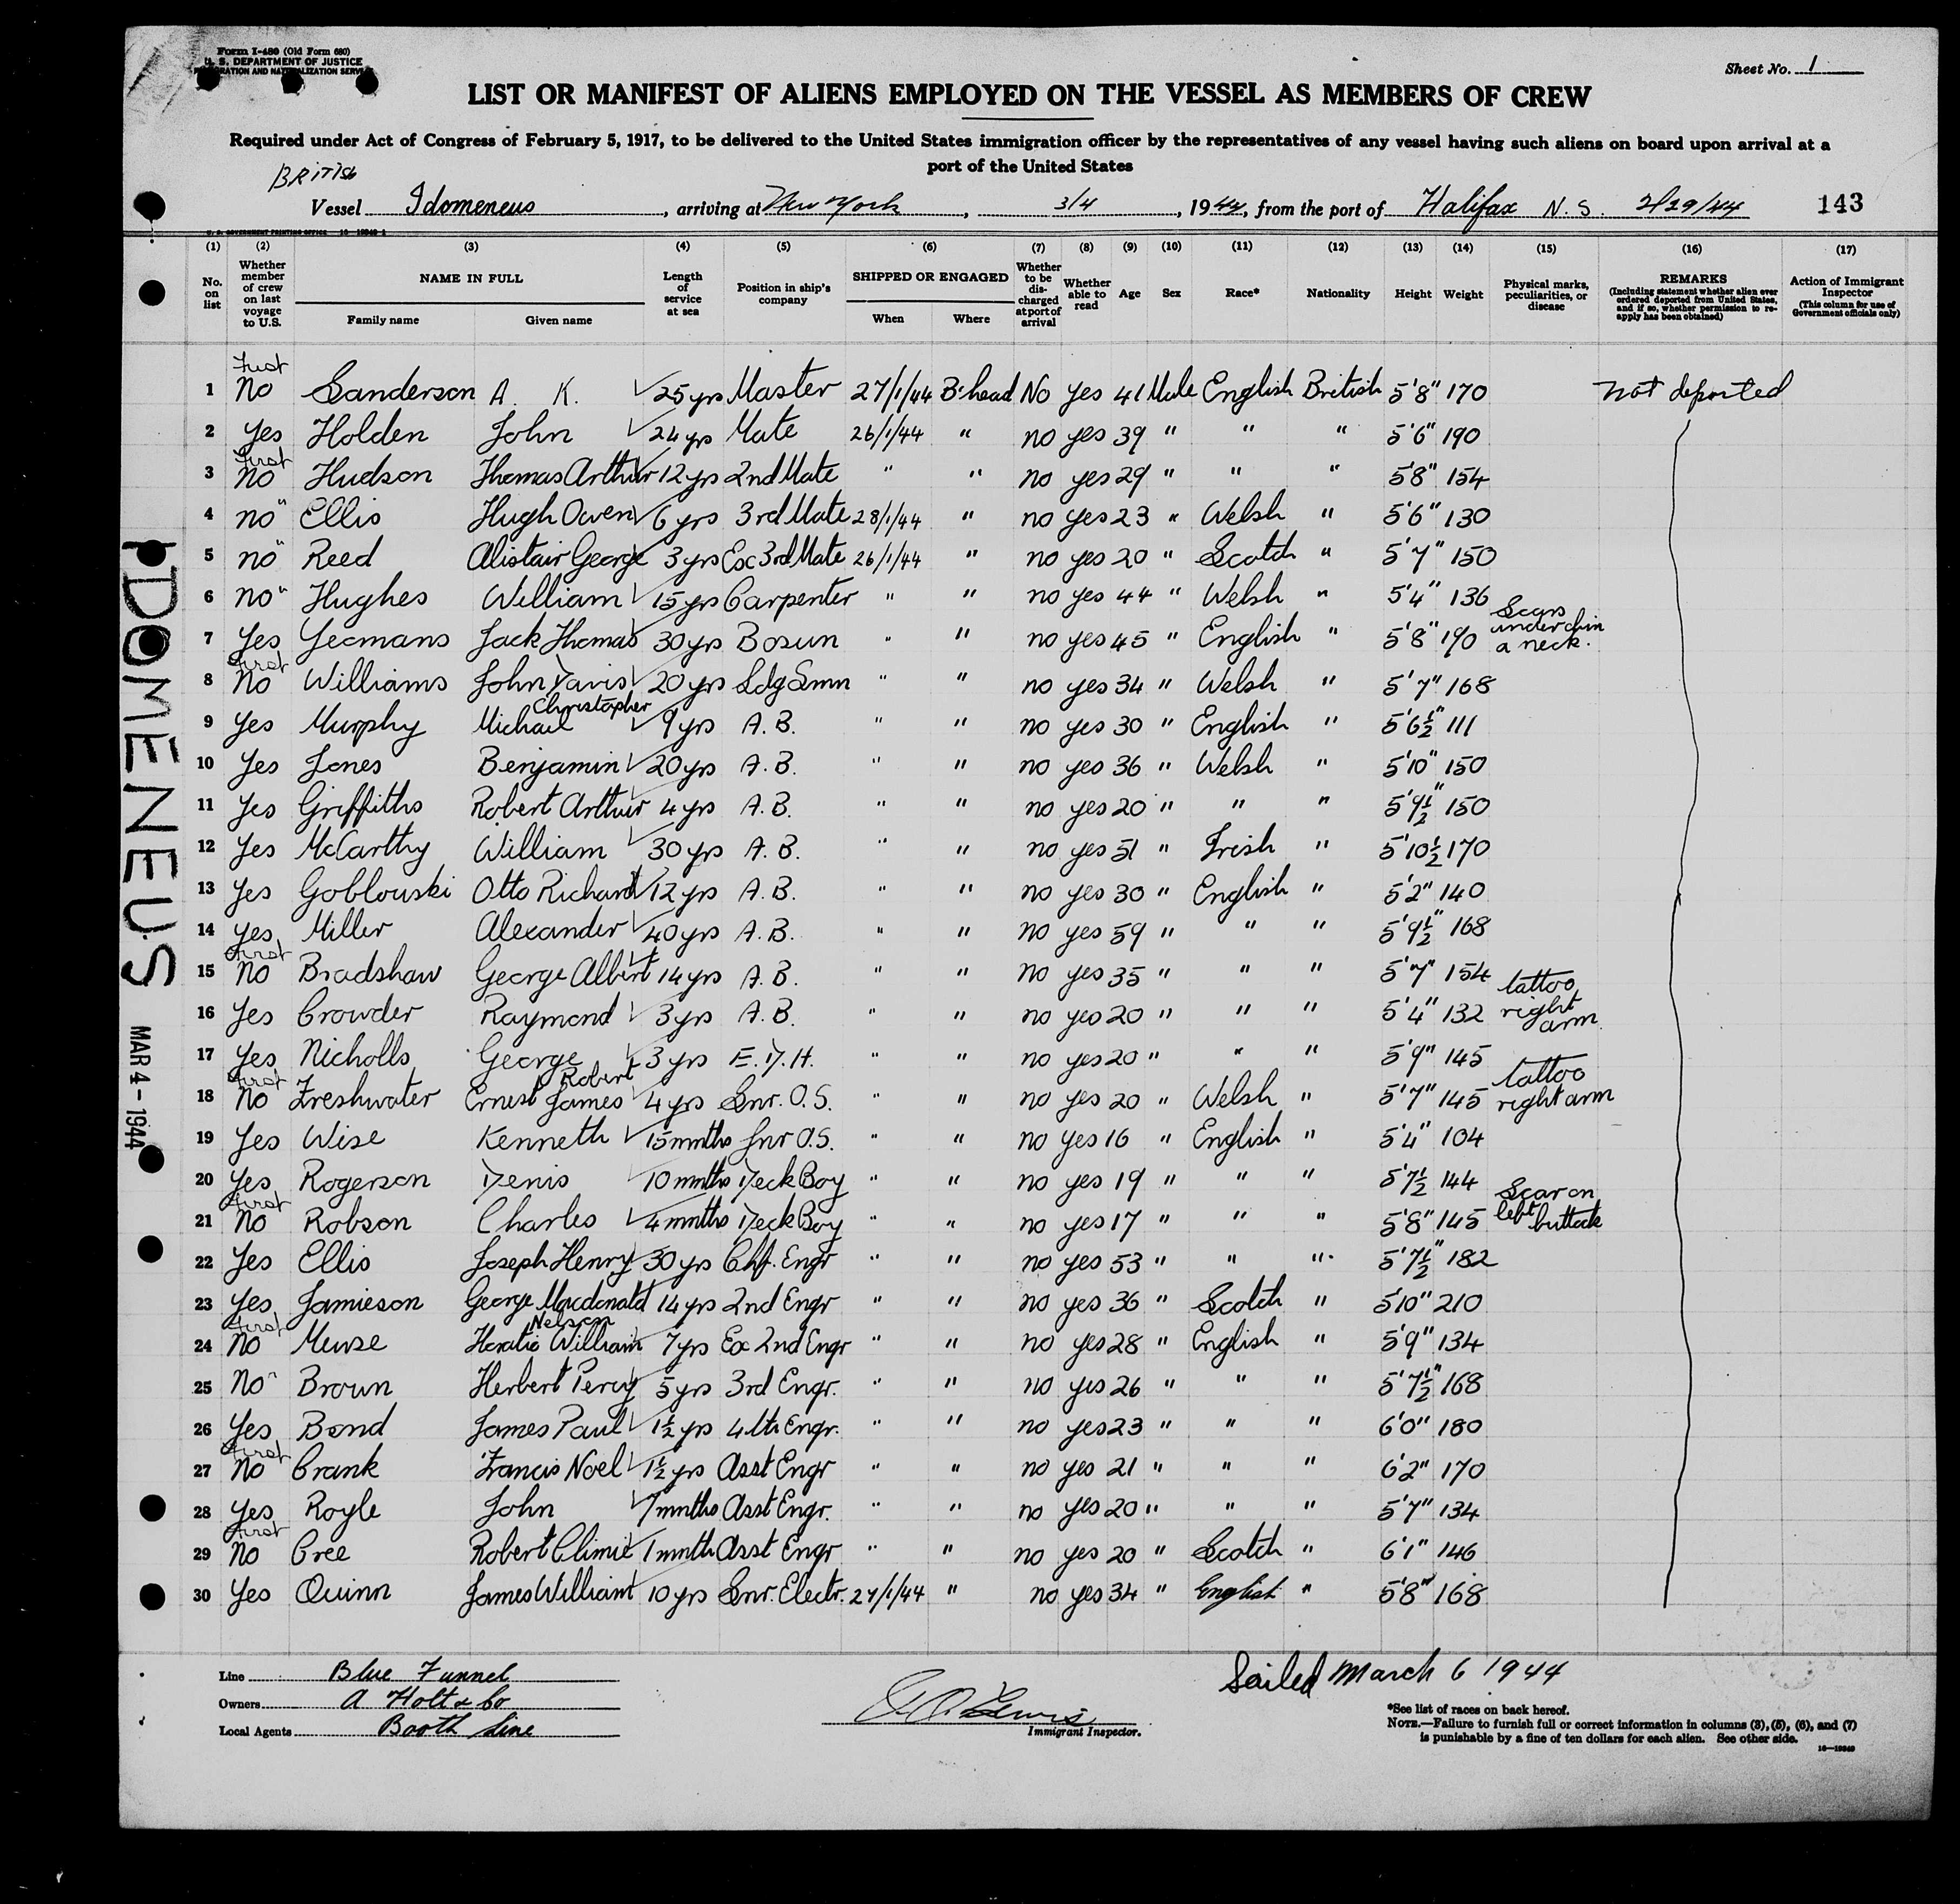 Form I-480 (Old Form 680)
U. S. DEPARTMENT OF JUSTICE
IMMIGRATION AND NATURALIZATION SERVICE
Sheet No. 1
LIST OR MANIFEST OF ALIENS EMPLOYED ON THE VESSEL AS MEMBERS OF CREW
Required under Act of Congress of February 5, 1917, to be delivered to the United States immigration officer by the representatives of any vessel having such aliens on board upon arrival at a
port of the United States
BRITISH
Vessel Idomeneus, arriving at New York, 3/4, 1944, from the port of Halifax N. S. 2/29/44 143
(1) (2) (3) (4) (5) (6) (7) (8) (9) (10) (11) (12) (13) (14) (15) (16) (17)
No. on list
Whether member of crew on last voyage to U.S.
NAME IN FULL
Family name Given name
Length of service at sea
Position in ship's company
SHIPPED OR ENGAGED
When Where
Whether to be discharged at port of arrival
Whether able to read
Age
Sex
Race*
Nationality
Height
Weight
Physical marks, peculiarities, or disease
REMARKS
(Including statement whether alien ever ordered deported from United States, and if so, whether permission to reapply has been obtained)
Action of Immigrant Inspector
(This column for use of Government officials only)
1 First No Sanderson A. K. 25 yrs Master 27/1/44 B'head No Yes 41 Male English British 5'8" 170 not deported
2 Yes Holden John 24 yrs Mate 26/1/44 " no yes 39 " " " 5'6" 190
3 First No Hudson Thomas Arthur 12 yrs 2nd Mate " " no yes 29 " " " 5'8" 154
4 no " Ellis Hugh Owen 6 yrs 3rd Mate 28/1/44 " no yes 23 " Welsh " 5'6" 130
5 no " Reed Alistair George 3 yrs Ex 3rd Mate 26/1/44 " no yes 20 " Scotch " 5'7" 150
6 no " Hughes William 15 yrs Carpenter " " no yes 44 " Welsh " 5'4" 136
7 Yes Yeomans Jack Thomas 30 yrs Bosun " " no yes 45 " English " 5'8" 190 Scars under chin a neck.
8 First No Williams John Davis 20 yrs Ldg Smn " " no yes 34 " Welsh " 5'7" 168
9 Yes Murphy Michael Christopher 9 yrs A. B. " " no yes 30 " English " 5'6½" 111
10 Yes Jones Benjamin 20 yrs A. B. " " no yes 36 " Welsh " 5'10" 150
11 Yes Griffiths Robert Arthur 4 yrs A. B. " " no yes 20 " " " 5'9½" 150
12 Yes McCarthy William 30 yrs A. B. " " no yes 51 " Irish " 5'10½ 170
13 Yes Goblouski Otto Richard 12 yrs A. B. " " no yes 30 " English " 5'2" 140
14 Yes Miller Alexander 40 yrs A. B. " " no yes 59 " " " 5'9½" 168
15 First No Bradshaw George Albert 14 yrs A. B. " " no yes 35 " " " 5'7" 154
16 Yes Crowder Raymond 3 yrs A. B. " " no yes 20 " " " 5'4" 132 tattoo right arm
17 Yes Nicholls George 3 yrs E. D. H. " " no yes 20 " " " 5'9" 145
18 First No Freshwater Ernest Robert James 4 yrs Snr. O. S. " " no yes 20 " Welsh " 5'7" 145 tattoo right arm
19 Yes Wise Kenneth 15 mnths Jnr O. S. " " no yes 16 " English " 5'4" 104
20 Yes Rogerson Denis 10 mnths Deck Boy " " no yes 19 " " " 5'7½ 144
21 First No Robson Charles 4 mnths Deck Boy " " no yes 17 " " " 5'8" 145 Scar on left buttock
22 Yes Ellis Joseph Henry 30 yrs Chf. Engr " " no yes 53 " " " 5'7½" 182
23 Yes Jamieson George Macdonald 14 yrs 2nd Engr " " no yes 36 " Scotch " 5'10" 210
24 First No Muse Horatio Nelson William 7 yrs Ex 2nd Engr " " no yes 28 " English " 5'9" 134
25 No " Brown Herbert Percy 5 yrs 3rd Engr. " " no yes 26 " " " 5'7½" 168
26 Yes Bond James Paul 1½ yrs 4th Engr. " " no yes 23 " " " 6'0" 180
27 First No Crank Francis Noel 1½ yrs Asst Engr " " no yes 21 " " " 6'2" 170
28 Yes Royle John 7 mnths Asst Engr. " " no yes 20 " " " 5'7" 134
29 First No Cree Robert Climie 1 mnth Asst Engr " " no yes 20 " Scotch " 6'1" 146
30 Yes Quinn James William 10 yrs Snr. Electr. 27/1/44 " no yes 34 " English " 5'8" 168
IDOMENEUS
MAR 4 - 1944
Line Blue Funnel
Owners A Holt & Co
Local Agents Booth Line
Immigrant Inspector.
Sailed March 6 1944
*See list of races on back hereof.
NOTE.—Failure to furnish full or correct information in columns (3), (5), (6), and (7)
is punishable by a fine of ten dollars for each alien. See other side.